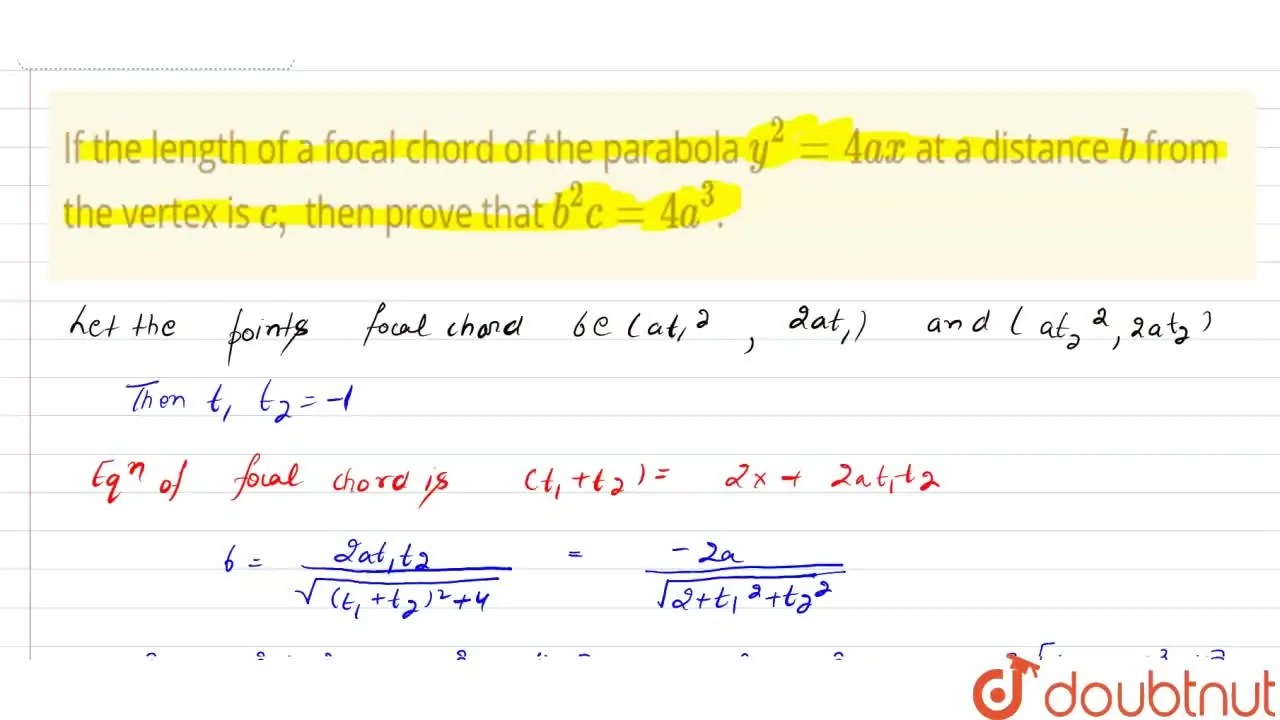 If the length of a focal chord of the parabola y² = 4ax at a distance b from
the vertex is c, then prove that b²c = 4a³.
Let the points focal chord be (at₁², 2at₁) and (at₂², 2at₂)
Then t₁ t₂ = -1
Eqⁿ of focal chord is (t₁ + t₂) = 2x + 2at₁t₂
b = 2at₁t₂ / √(t₁ + t₂)² + 4 = -2a / √2 + t₁² + t₂²
doubtnut